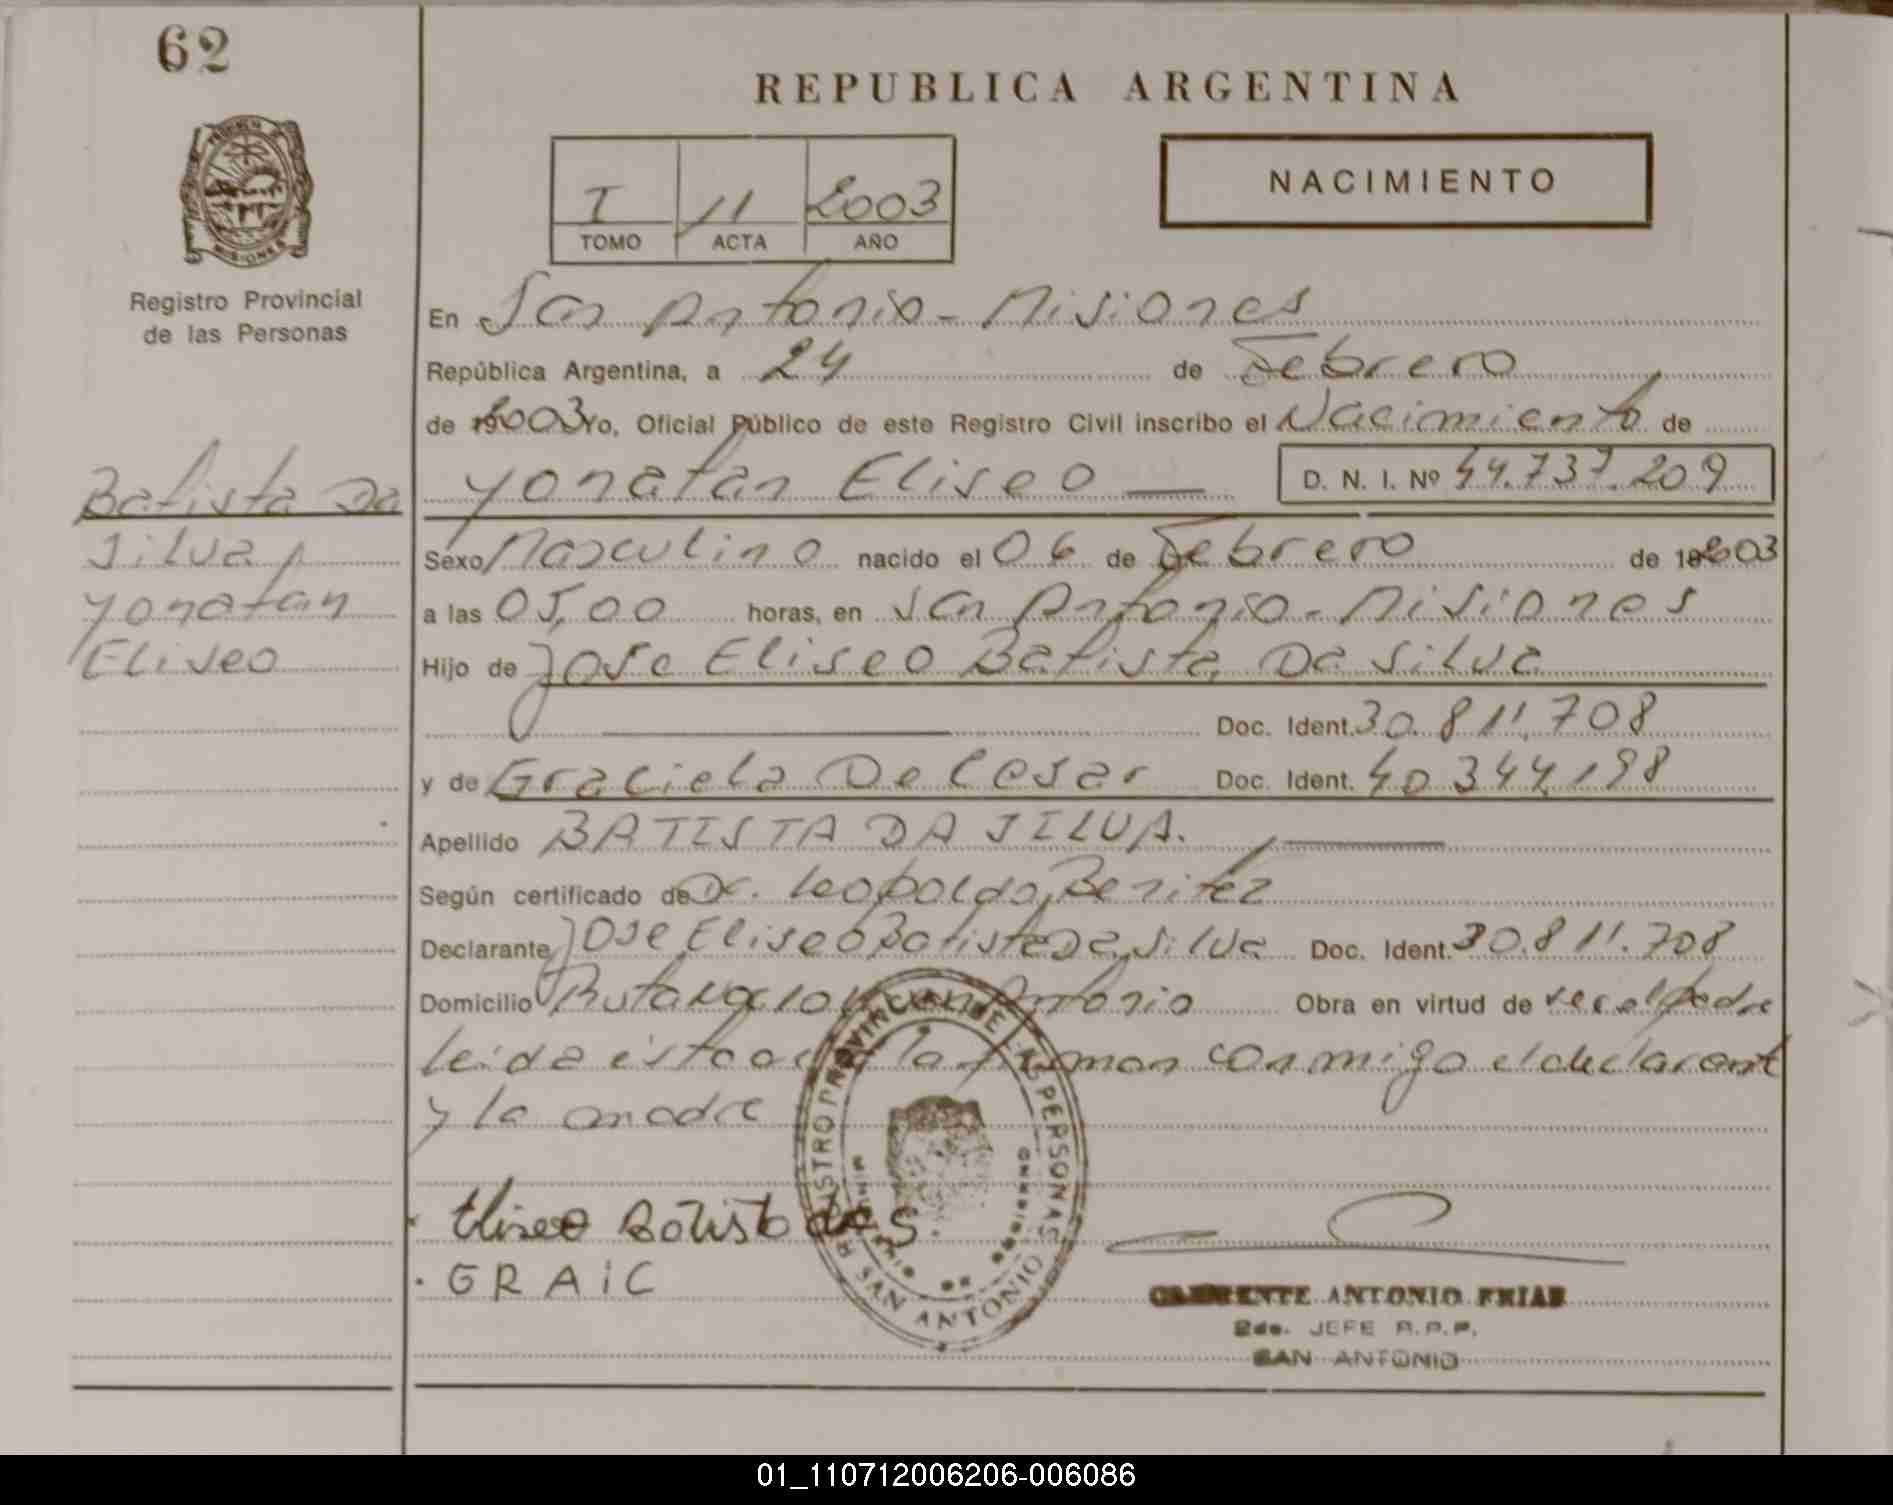 62
REPUBLICA ARGENTINA
I 11 2003
TOMO ACTA AÑO
NACIMIENTO
PROVINCIA
MISIONES
Registro Provincial
de las Personas
En San Antonio - Misiones
República Argentina, a 24 de Febrero
de 2003 Yo, Oficial Público de este Registro Civil inscribo el Nacimiento de
Yonatan Eliseo — D. N. I. Nº 44.737.209
Batista Da
Silva,
Yonatan
Eliseo
Sexo Masculino nacido el 06 de Febrero de 2003
a las 05,00 horas, en San Antonio - Misiones
Hijo de Jose Eliseo Batista Da Silva
Doc. Ident. 30.811.708
y de Graciela De Cesar Doc. Ident. 40.344.198
Apellido BATISTA DA SILVA.
Según certificado de Dr. Leopoldo Benitez
Declarante Jose Eliseo Batista Da Silva Doc. Ident. 30.811.708
Domicilio Ruta Antonio Obra en virtud de ser el padre
leida esta la firman conmigo el declarant
y la madre
Eliseo Batista da S.
GRAIC
REGISTRO PROVINCIAL DE LAS PERSONAS
SAN ANTONIO
CLEMENTE ANTONIO FRIAS
2do. JEFE R.P.P.
SAN ANTONIO
01_110712006206-006086